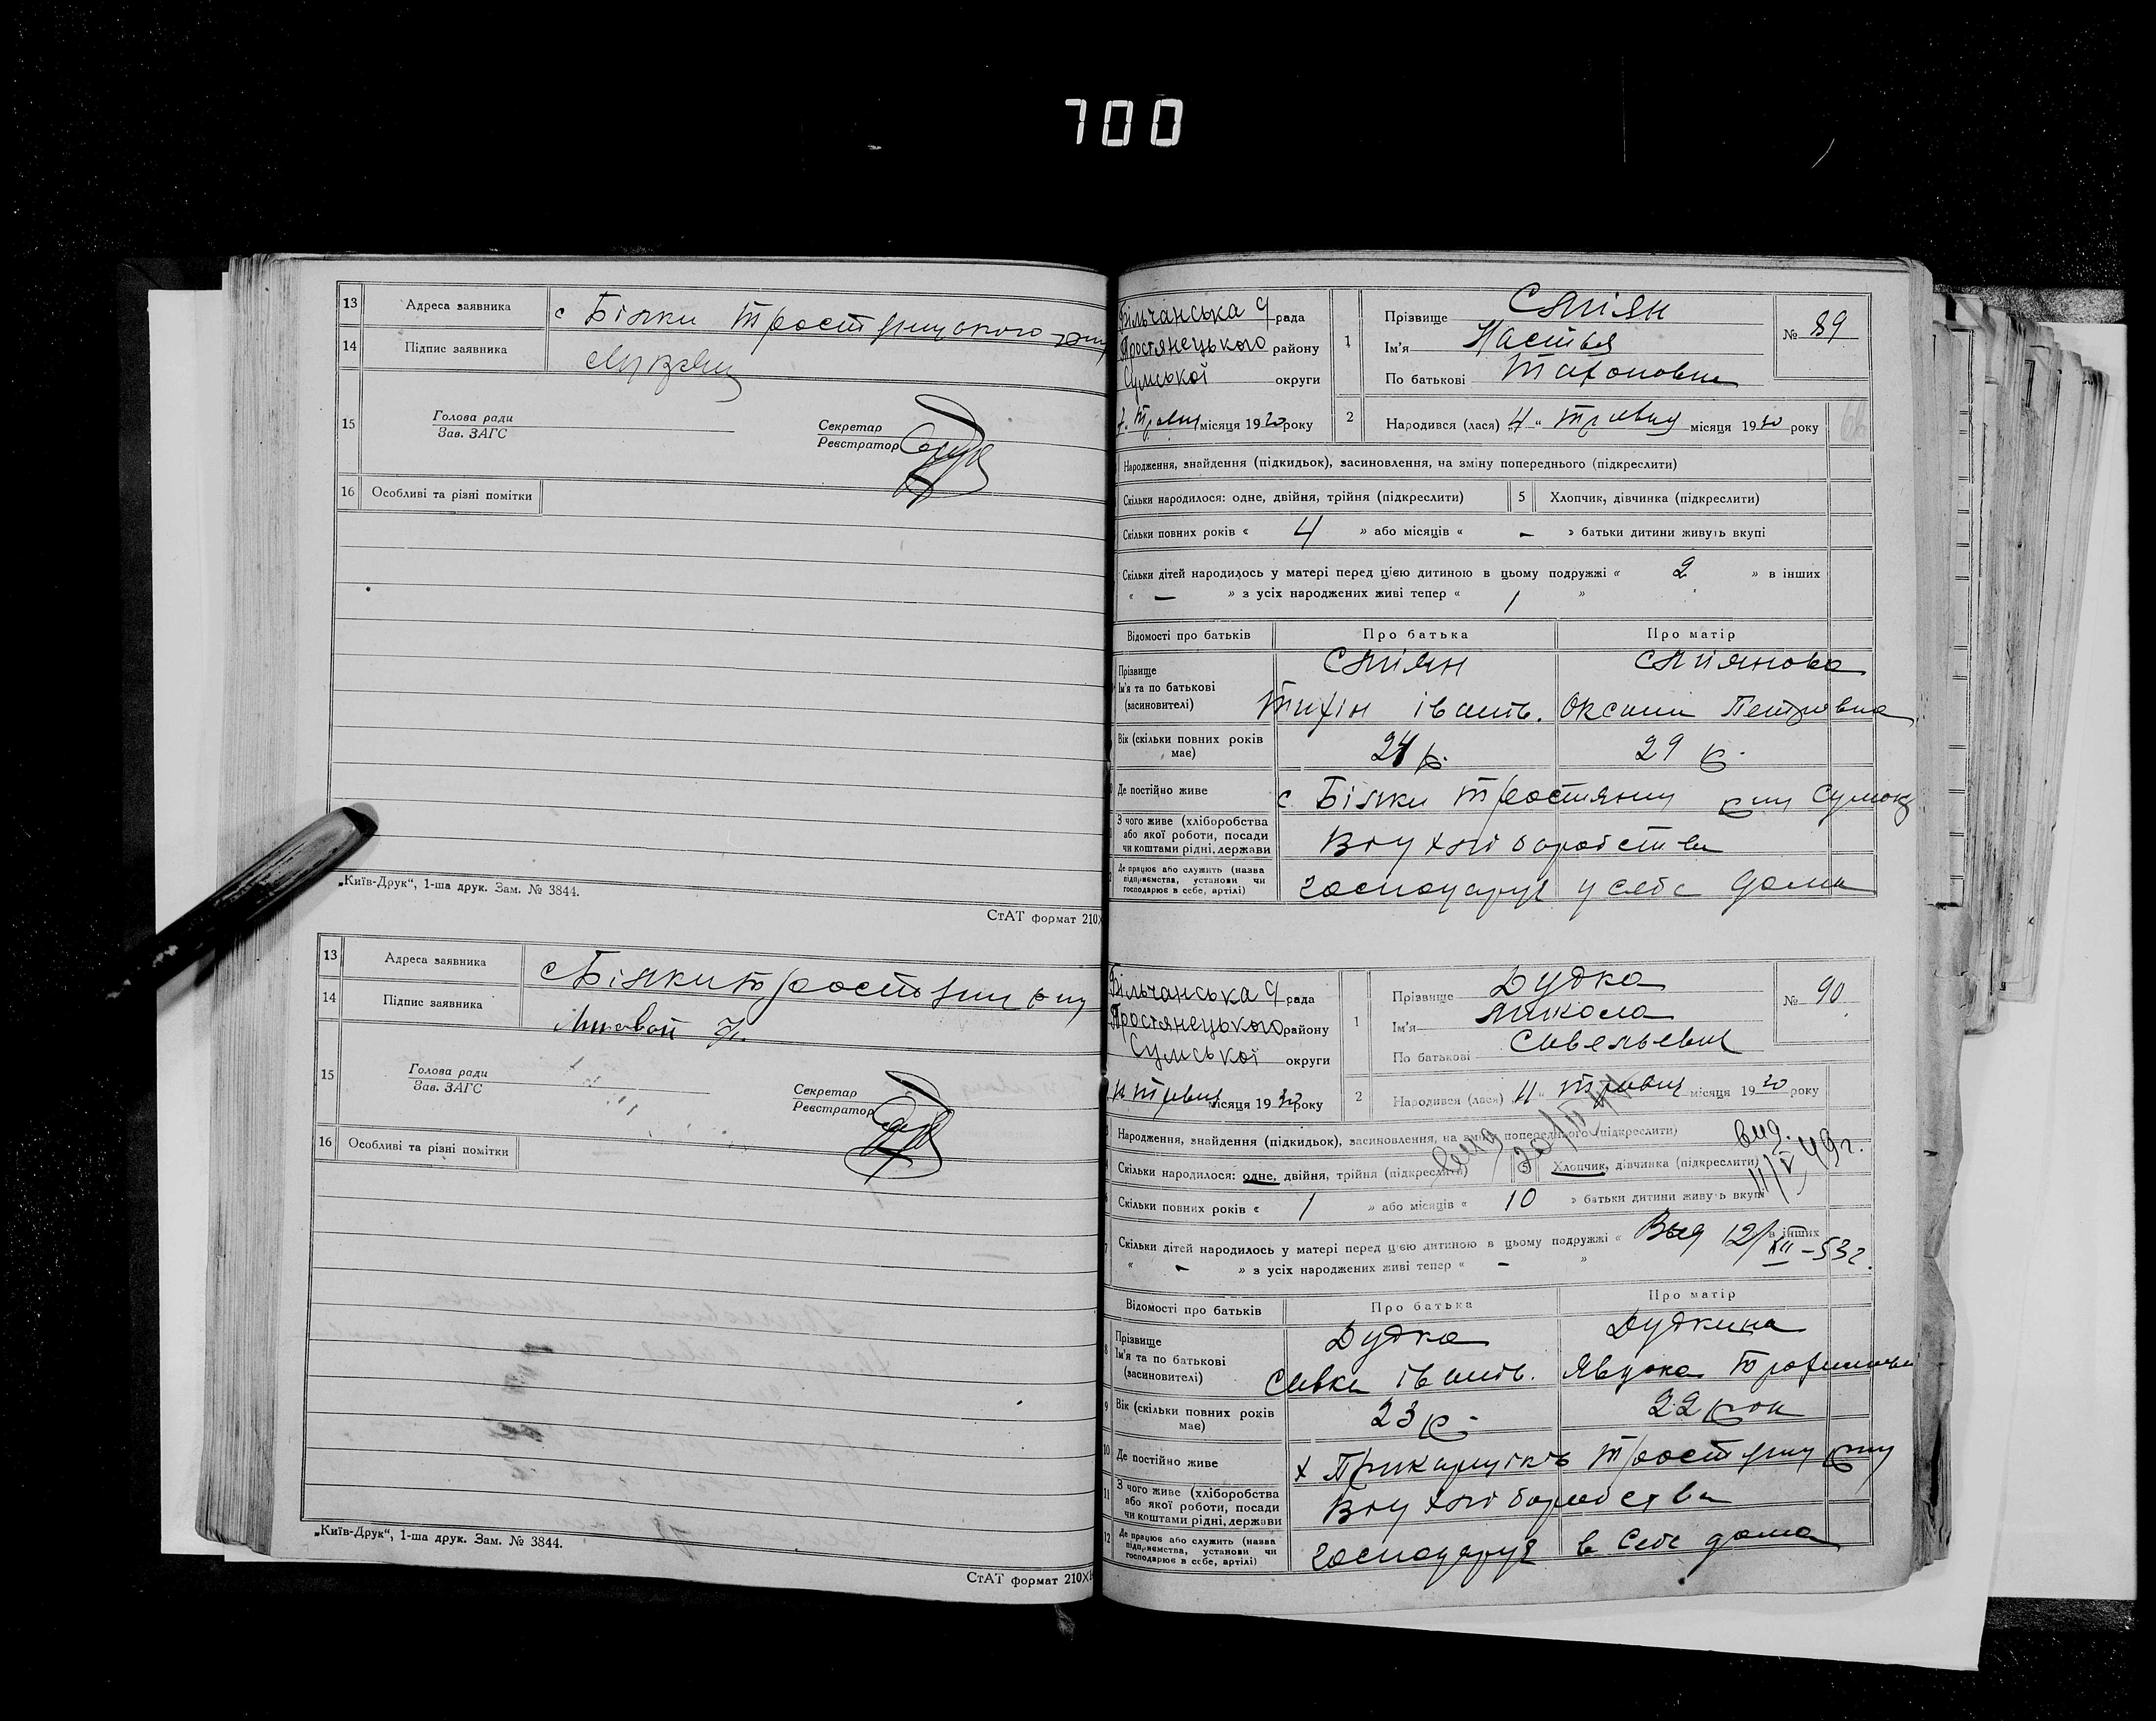 700
13 Адреса заявника с Білки
14 Підпис заявника
15 Голова ради
Зав. ЗАГС
Секретар
Реєстратор
16 Особливі та різні помітки
„Київ-Друк“, 1-ша друк. Зам. № 3844.
СтАТ формат 210X
13 Адреса заявника с Білки
14 Підпис заявника
15 Голова ради
Зав. ЗАГС
Секретар
Реєстратор
16 Особливі та різні помітки
„Київ-Друк“, 1-ша друк. Зам. № 3844.
СтАТ формат 210X
Більчанська рада
Тростянецького району
Сумської округи
місяця 1930 року
1 Прізвище
Ім'я Настья
По батькові Тихоновна
№ 89
2 Народився (лася) „4“ травня місяця 1930 року
Народження, знайдення (підкидьок), засиновлення, на зміну попереднього (підкреслити)
Скільки народилося: одне, двійня, трійня (підкреслити) 5 Хлопчик, дівчинка (підкреслити)
Скільки повних років « 4 » або місяців « — » батьки дитини живуть вкупі
Скільки дітей народилось у матері перед цією дитиною в цьому подружжі « 2 » в інших
« — » з усіх народжених живі тепер « 1 »
Відомості про батьків Про батька Про матір
Прізвище
Ім'я та по батькові Тихін Іванів. Оксана Петровна
(засиновителі)
Вік (скільки повних років 24 р. 29 р.
має)
Де постійно живе с. Білки
З чого живе (хліборобства
або якої роботи, посади
чи коштами рідні, держави
Де працює або служить (назва
підприємства, установи чи
господарює в себе, артілі) господарує у себе дома
Більчанська рада
Тростянецького району
Сумської округи
11 травня місяця 1930 року
1 Прізвище Дудка
Ім'я Микола
По батькові Савельевич
№ 90
2 Народився (лася) „11“ травня місяця 1930 року
3 Народження, знайдення (підкидьок), засиновлення, на зміну попереднього (підкреслити)
вид.
4 Скільки народилося: одне, двійня, трійня (підкреслити) 5 Хлопчик, дівчинка (підкреслити)
11/V 49г.
6 Скільки повних років « 1 » або місяців « 10 » батьки дитини живуть вкупі
7 Скільки дітей народилось у матері перед цією дитиною в цьому подружжі « » в інших
Выд 12/XII-53г.
« - » з усіх народжених живі тепер « - »
Відомості про батьків Про батька Про матір
8 Прізвище Дудка Дудкина
Ім'я та по батькові Савка Іванів. Явдоха
(засиновителі)
9 Вік (скільки повних років 23 р. 22 рок
має)
10 Де постійно живе
11 З чого живе (хліборобства
або якої роботи, посади
чи коштами рідні, держави
12 Де працює або служить (назва
підприємства, установи чи
господарює в себе, артілі) господарує в себе дома